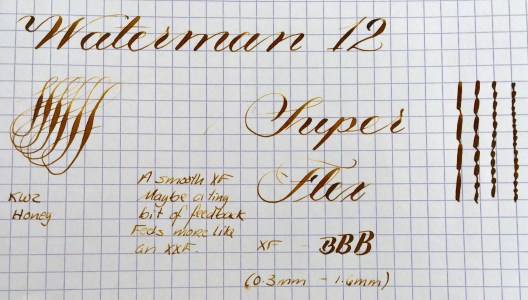 Waterman 12
Super
Flex
KWZ
Honey
A smooth XF
Maybe a tiny
bit of feedback
Feels more like
an XXF.
XF - BBB
(0.3mm - 1.6mm)